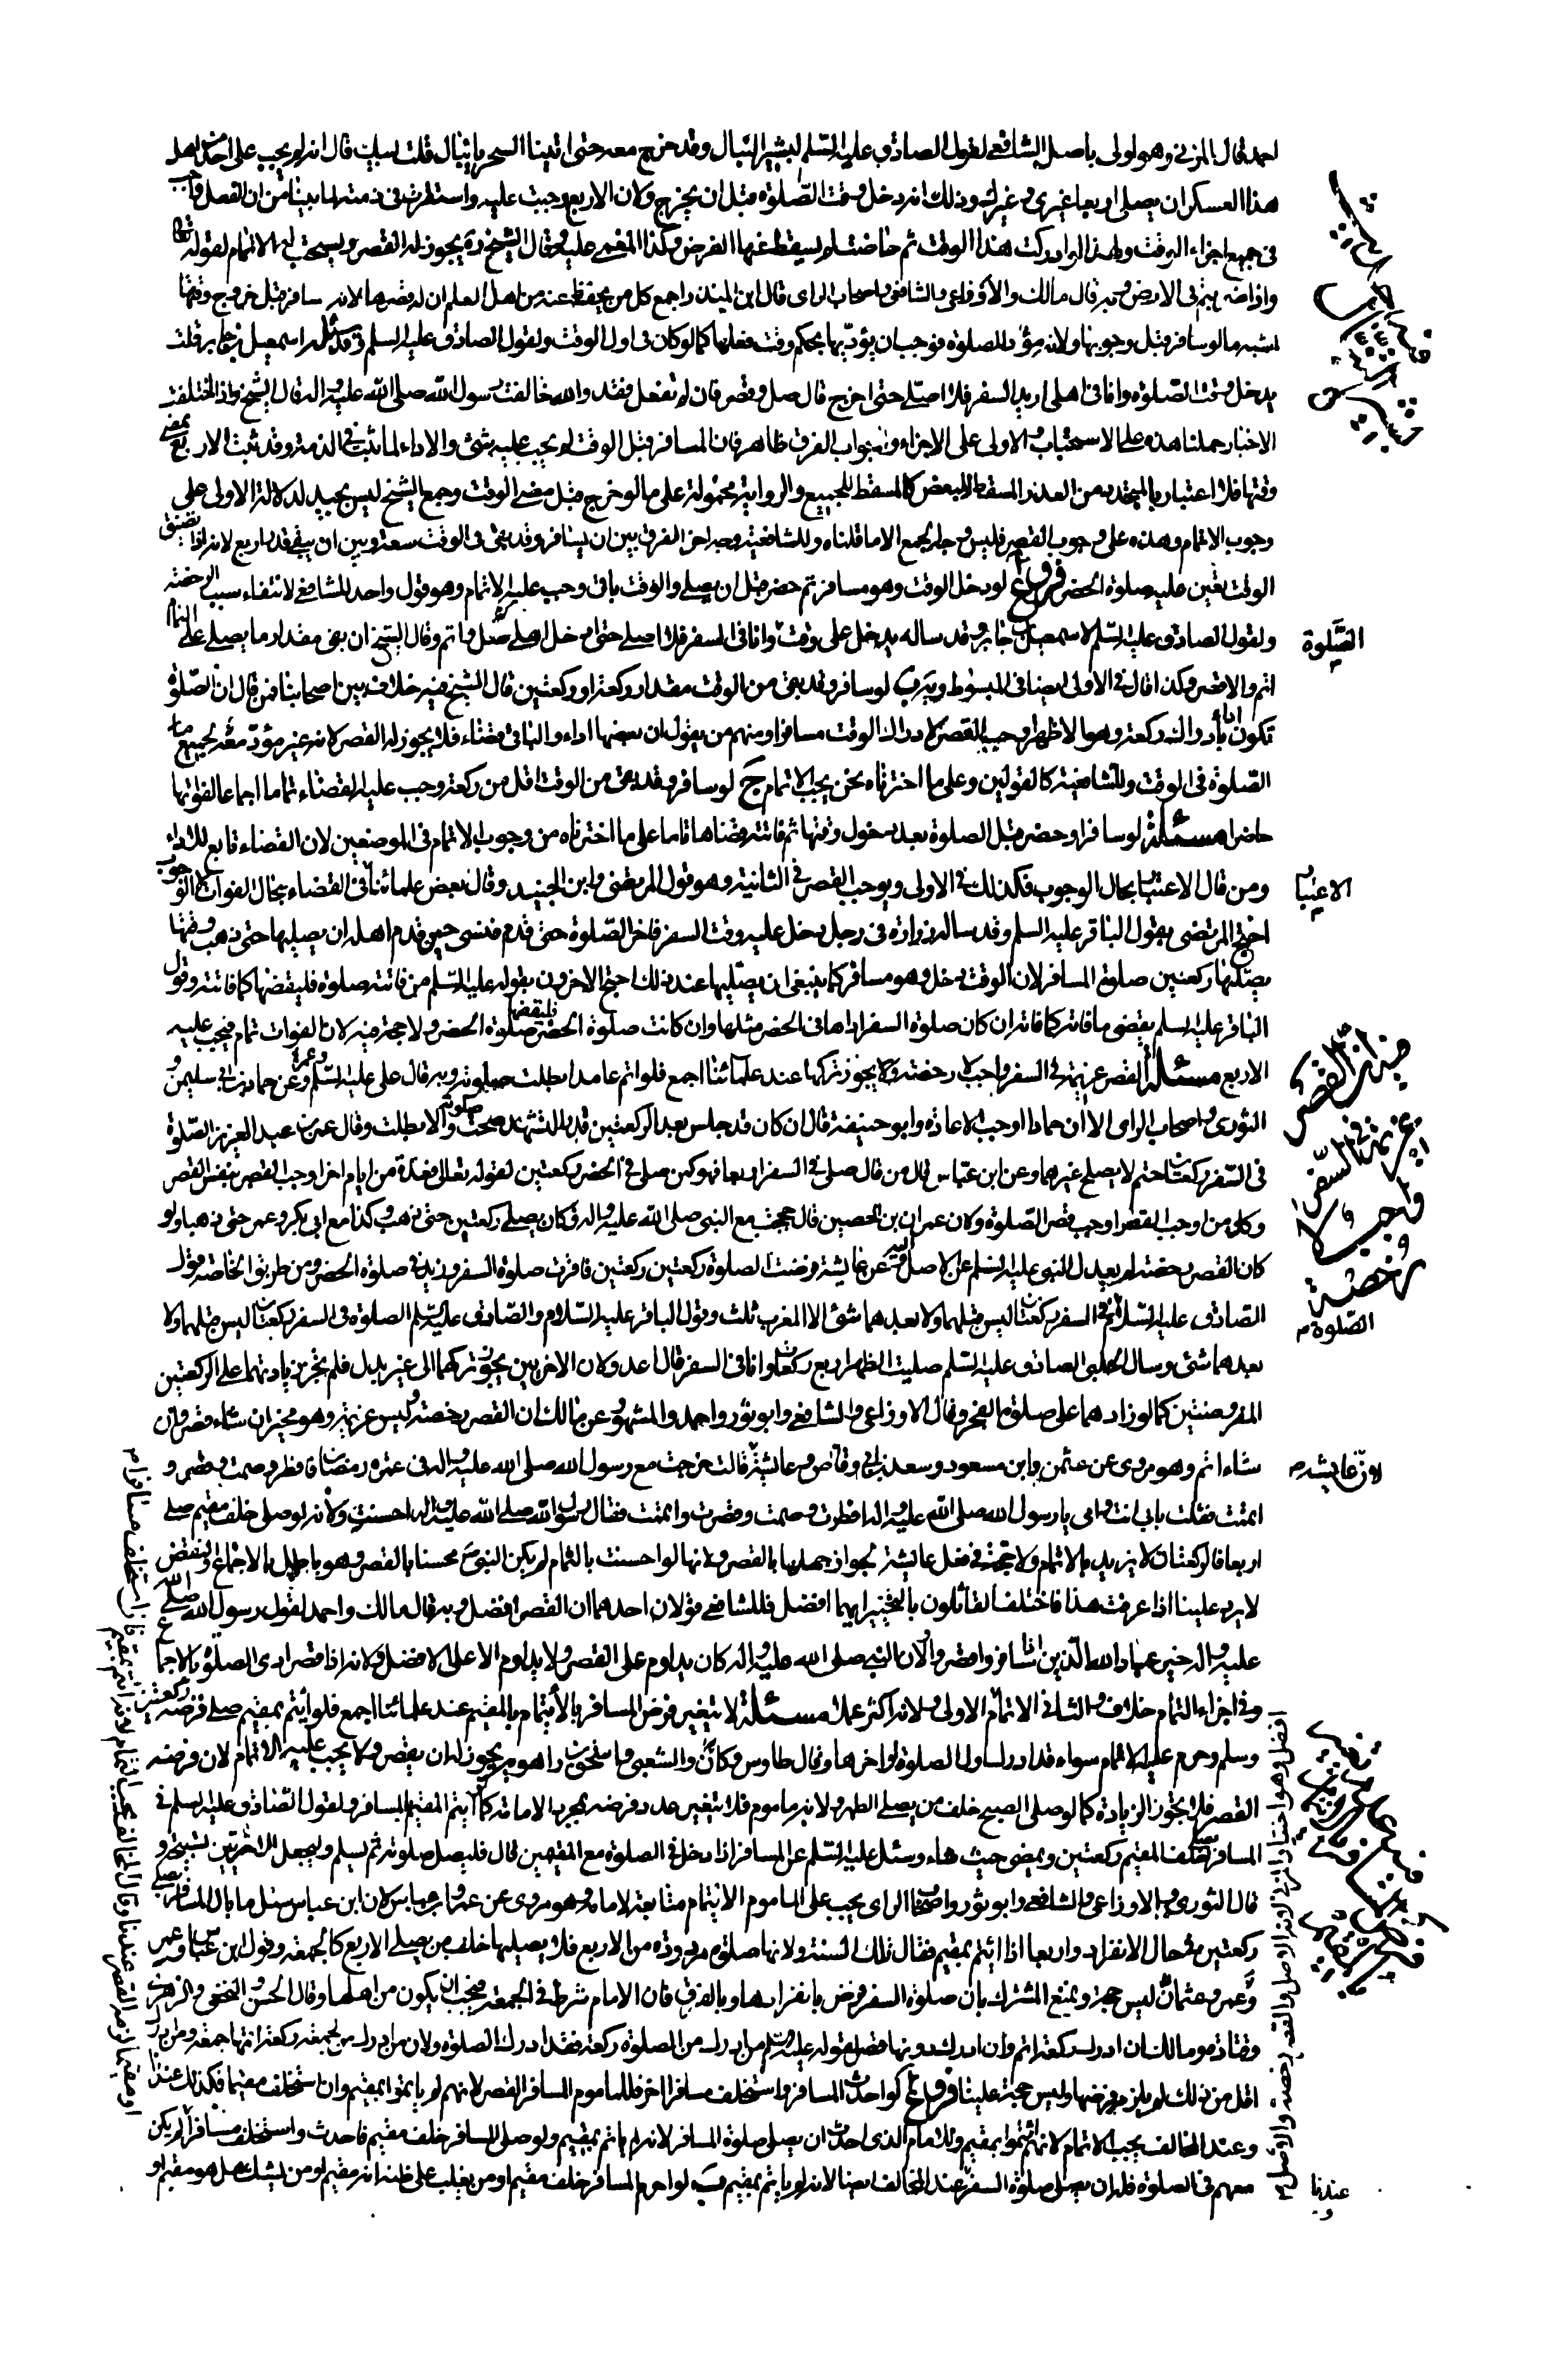 احمد قال المزني وهو اولى باصل الشافعي لقول الصادق عليه السلم لبشير النبال وقد خرج معه حتى اتينا الشجرة يا نبال قلت لبيك قال انه لم يجب على احد من اهل
هذا العسكر ان يصلي اربعا غيري وغيرك وذلك انه دخل وقت الصلوة قبل ان يخرج وكان الاربع وجبت عليه واستقرت في ذمته لما بينا من ان الفعل واجب
في جميع اجزاء الوقت ولهذا لو ادركت هذا الوقت ثم حاضت لم يسقط عنها الفرض وكذا المغمى عليه وقال الشيخ ره يجوز له القصر ويستحب له الاتمام لقوله تعالى
واذا ضربتم في الارض وبه قال مالك والاوزاعي والشافعي واصحاب الراي قال ابن المنذر اجمع كل من يحفظ عنه من اهل العلم ان له قصرها لانه سافر قبل خروج وقتها
اشبه ما لو سافر قبل وجوبها ولانه مؤد للصلوة فوجب ان يؤديها بحكم وقت فعلها كما لو كان في اول الوقت ولقول الصادق عليه السلم وقد سئله اسمعيل بن جابر قلت
يدخل وقت الصلوة وانا في اهلي اريد السفر فلا اصلي حتى اخرج قال صل وقصر فان لم تفعل فقد والله خالفت رسول الله صلى الله عليه واله قال الشيخ واذا اختلفت
الاخبار حملنا هذه على الاستحباب والاولى على الاجزاء والجواب الفرق ظاهر فان المسافر قبل الوقت لم يجب عليه شئ والاداء لما ثبت في الذمة وقد ثبت الاربع بمضي
وقتها فلا اعتبار بالمتجدد من العذر المسقط للبعض كالمسقط للجميع والرواية محمولة على ما لو خرج قبل مضي الوقت وجمع الشيخ ليس بجيد لدلالة الاولى على
وجوب الاتمام وهذه على وجوب القصر فليس وجه الجمع الا ما قلناه وللشافعية وجه اخر الفرق بين ان يسافر وقد بقي في الوقت سعة وبين ان يبقى قدر اربع لانه اذا تضيق
الوقت تعين عليه صلوة الحضر فروع ا لو دخل الوقت وهو مسافر ثم حضر قبل ان يصلي والوقت باق وجب عليه الاتمام وهو قول واحد للشافعي لانتفاء سبب الرخصة
ولقول الصادق عليه السلم لاسمعيل بن جابر وقد ساله يدخل علي وقت الصلوة وانا في السفر فلا اصلي حتى ادخل اهلي صل واتم وقال الشيخ ان بقي مقدار ما يصلي على التمام
اتم والا قصر وكذا قال في الاولى ايضا في المبسوط ويه ب لو سافر وقد بقي من الوقت مقدار ركعة او ركعتين قال الشيخ فيه خلاف بين اصحابنا فمن قال ان الصلوة
تكون اداء بادراك ركعة وهو الاظهر وجب القصر لادراك الوقت مسافرا ومنهم من يقول ان بعضها اداء والباقي قضاء فلا يجوز له القصر لانه غير مؤد لجميع
الصلوة في الوقت وللشافعية كالقولين وعلى ما اخترناه نحن يجب الاتمام ج لو سافر وقد بقي من الوقت اقل من ركعة وجب عليه القضاء تماما اجماعا لفواتها
حاضرا مسئلة لو سافر او حضر قبل الصلوة بعد دخول وقتها ثم فاتته قضاها تاما على ما اخترناه من وجوب الاتمام في الموضعين لان القضاء تابع للاداء
ومن قال الاعتبار بحال الوجوب فكذلك في الاولى ويوجب القصر في الثانية وهو قول المرتضى وابن الجنيد وقال بعض علمائنا في القضاء بحال الفوات لا الوجوب
احتج المرتضى بقول الباقر عليه السلم وقد ساله زرارة في رجل دخل عليه وقت السفر فاخر الصلوة حتى قدم فنسي حين قدم اهله ان يصليها حتى ذهب وقتها
يصليها ركعتين صلوة المسافر لان الوقت دخل وهو مسافر كما ينبغي ان يصليها عند ذلك احتج الاخرون بقوله عليه السلم من فاتته صلوة فليقضها كما فاتته وقول
الباقر عليه السلم يقضي ما فاته كما فاته ان كان صلوة السفر اداها في الحضر مثلها وان كانت صلوة الحضر فليقض صلوة الحضر ولا حجة فيه لان الفوات تمام فيجب عليه
الاربع مسئلة القصر عزيمة في السفر واجب لا رخصة لا يجوز تركها عند علمائنا اجمع فلو اتم عامدا بطلت صلوته وبه قال علي عليه السلم وعمر وعن حماد بن ابي سليمن و
الثوري واصحاب الراي الا ان حمادا اوجب الاعادة وابو حنيفة قال ان كان قد جلس بعد الركعتين قدر التشهد صحت صلوته والا بطلت وقال عمر بن عبد العزيز الصلوة
في السفر ركعتان حتم لا يصلح غيرهما وعن ابن عباس قال من قال صلى في السفر اربعا فهو كمن صلى في الحضر ركعتين لقوله تعالى فعدة من ايام اخر اوجب القصر بنفس القصر
وكل من اوجب القصر اوجب قصر الصلوة وكان عمران بن الحصين قال حججت مع النبي صلى الله عليه واله وكان يصلي ركعتين حتى ذهب وكذا مع ابي بكر وعمر حتى ذهبا ولو
كان القصر رخصة لم يعدل النبي عليه السلم عن الاصل وعن عايشة فرضت الصلوة ركعتين ركعتين فاقرت صلوة السفر وزيد في صلوة الحضر ومن طريق الخاصة قول
الصادق عليه السلام في السفر ركعتان ليس قبلهما ولا بعدهما شئ الا المغرب ثلث وقول الباقر عليه السلام والصادق عليه السلم الصلوة في السفر ركعتان ليس قبلهما ولا
بعدهما شئ وسال الحلبي الصادق عليه السلم صليت الظهر اربع ركعات وانا في السفر قال اعد ولان الاخريين يجوز تركهما الى غير بدل فلم يجز زيادتهما على الركعتين
المفروضتين كما لو زادهما على صلوة الفجر وقال الاوزاعي والشافعي وابو ثور واحمد والمشهور عن مالك ان القصر رخصة وليس عزيمة وهو مخير ان شاء قصر وان
شاء اتم وهو مروي عن عثمن وابن مسعود وسعد بن ابي وقاص وعايشة قالت خرجت مع رسول الله صلى الله عليه واله في عمرة رمضان فافطر وصمت وقصر و
اتممت فقلت بابي انت وامي يا رسول الله صلى الله عليه واله افطرت وصمت وقصرت واتممت فقال رسول الله صلى الله عليه واله احسنت ولانه لو صلى خلف مقيم صلى
اربعا فالركعتان لا يزيد بالاتمام ولا حجة في فعل عايشة لجواز جهلها بالقصر ولانها لو احسنت بالتمام لم يكن النبي ص محسنا بالقصر وهو باطل بالاجماع والنقض
لا يرد علينا اذا عرفت هذا فاختلف القائلون بالتخيير ايهما افضل فللشافعي قولان احدهما ان القصر افضل وبه قال مالك واحمد لقول رسول الله صلى الله
عليه واله خير عباد الله الذين اذا سافروا قصروا ولان النبي صلى الله عليه واله كان يداوم على القصر ولا يداوم الا على الافضل ولانه اذا قصر ادى الصلوة بالاجماع
وفي اجزاء التمام خلاف والثاني الاتمام الاولى ولانه اكثر عملا مسئلة لا يتغير فرض المسافر بالايتمام بالمقيم عند علمائنا اجمع فلو ايتم بمقيم صلى فرضه ركعتين
وسلم وحرم عليه الاتمام سواء قد ادرك اول الصلوة او اخرها وقال طاوس والشعبي واسحق بن راهويه يجوز له ان يقصر ولا يجب عليه الاتمام لان فرضه
القصر فلا يجوز الزيادة كما لو صلى الصبح خلف من يصلي الظهر ولانه ماموم فلا يتغير عدد فرضه بمجرد الامامة كما ايتم المقيم بالمسافر ولقول الصادق عليه السلم في
المسافر يصلي خلف المقيم ركعتين ويمضي حيث شاء وسئل عليه السلم عن المسافر اذا دخل في الصلوة مع المقيمين قال فليصل صلوته ثم يسلم وليجعل الاخريتين سبحة و
قال الثوري والاوزاعي والشافعي وابو ثور واصحاب الراي يجب على الماموم الاتمام متابعة لامامه وهو مروي عن عمر وابن عباس لان ابن عباس سئل ما بال المسافر يصلي
ركعتين في حال الانفراد واربعا اذا ائتم بمقيم فقال تلك السنة ولانها صلوة مردودة من الاربع فلا يصليها خلف من يصلي الاربع كالجمعة وقول ابن عباس
وعمر وعثمان ليس حجة ونمنع المشترك بان صلوة السفر فرض بانفرادها وبالفرق فان الامام شرط في الجمعة فيجب ان يكون من اهلها وقال الحسن والنخعي والزهري
وقتادة ومالك ان ادرك ركعة اتم وان ادرك دونها قصر لقوله عليه السلم من ادرك من الصلوة ركعة فقد ادرك الصلوة ولان من ادرك من الجمعة ركعة اتمها جمعة ومن ادرك
اقل من ذلك لم يلزمه فرضها وليس حجة علينا فروع ا لو احدث المسافر واستخلف مسافرا اخر فللماموم المسافر القصر لانهم لم ياتموا بمقيم وان استخلف مقيما فكذلك عندنا
وعند المخالف يجب الاتمام لانهم ائتموا بمقيم وللامام الذي احدث ان يصلي صلوة المسافر لانه لم ياتم بمقيم ولو صلى المسافر خلف مقيم فاحدث واستخلف مسافرا لم يكن
معهم في الصلوة فله ان يصلي صلوة السفر عند المخالف ايضا لانه لم ياتم بمقيم ب لو احرم المسافر خلف مقيم او من يغلب على ظنه انه مقيم او من يشك هل هو مقيم او
الصلوة
الاعتبار
في ان القصر
عزيمة في السفر
واجب لا
رخصة
الصلوة
لان عايشة
عندنا